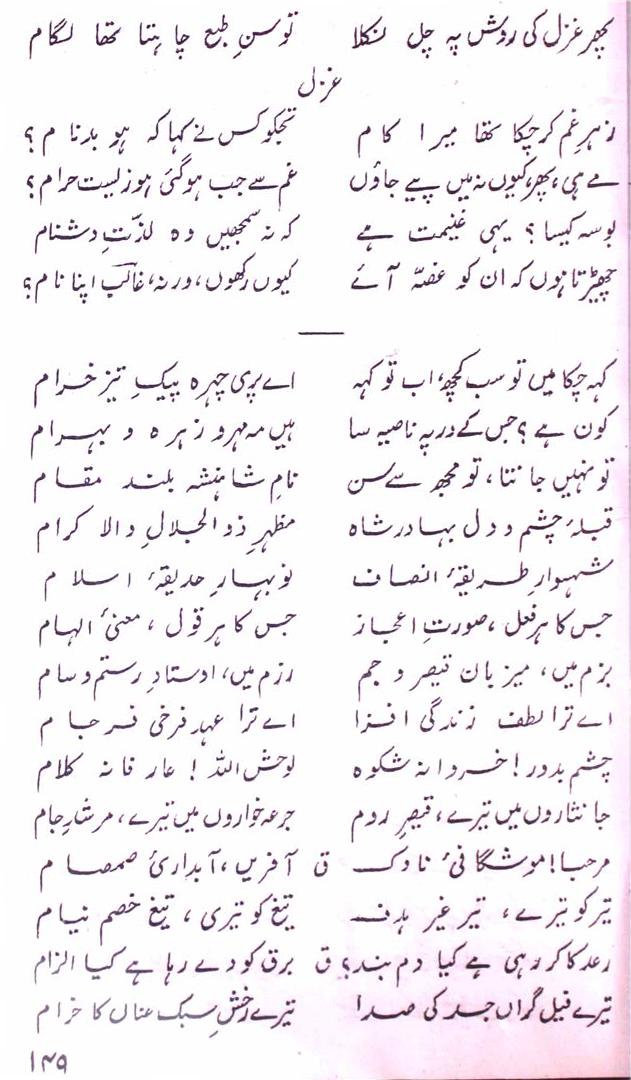 پھر غزل کی روش پہ چل نکلا توسنِ طبع چاہتا تھا لگام
غزل
زہرِ غم کر چکا تھا میرا کام تجکو کس نے کہا کہ ہو بدنام؟
مے ہی، پھر کیوں نہ میں پیے جاؤں غم سے جب ہو گئی ہو زیست حرام؟
بوسہ کیسا؟ یہی غنیمت ہے کہ نہ سمجھیں وہ لذّتِ دشنام
چھیڑتا ہوں کہ ان کو غصّہ آئے کیوں رکھوں، ورنہ، غالبؔ اپنا نام؟
کہہ چکا میں تو سب کچھ، اب تو کہہ اے پری چہرہ پیکِ تیز خرام
کون ہے؟ جس کے در پہ ناصیہ سا ہیں مہ و مہر و زہرہ و بہرام
تو نہیں جانتا، تو مجھ سے سن نامِ شاہنشہِ بلند مقام
قبلۂ چشم و دل بہادر شاہ مظہرِ ذوالجلالِ والا کرام
شہسوارِ طریقۂ انصاف نوبہارِ حدیقۂ اسلام
جس کا ہر فعل، صورتِ اعجاز جس کا ہر قول، معنیٔ الہام
بزم میں، میزبان قیصر و جم رزم میں، اوستادِ رستم و سام
اے ترا لطف زندگی افزا اے ترا عہد فرخی فرجام
چشمِ بد دور! خسروانہ شکوہ لوحش اللہ! عارفانہ کلام
جانثاروں میں تیرے، قیصرِ روم جرعہ خواروں میں تیرے، مرشدِ جام
مرحبا! موشگافیٔ ناوک ق آفریں، آبداریٔ صمصام
تیر کو تیرے، تیرِ غیر ہدف تیغ کو تیری، تیغِ خصم نیام
رعد کا کر رہی ہے کیا دم بند؟ ق برق کو دے رہا ہے کیا الزام
تیرے فیلِ گراں جسد کی صدا تیرے رخشِ سبک عناں کا خرام
۱۴۹